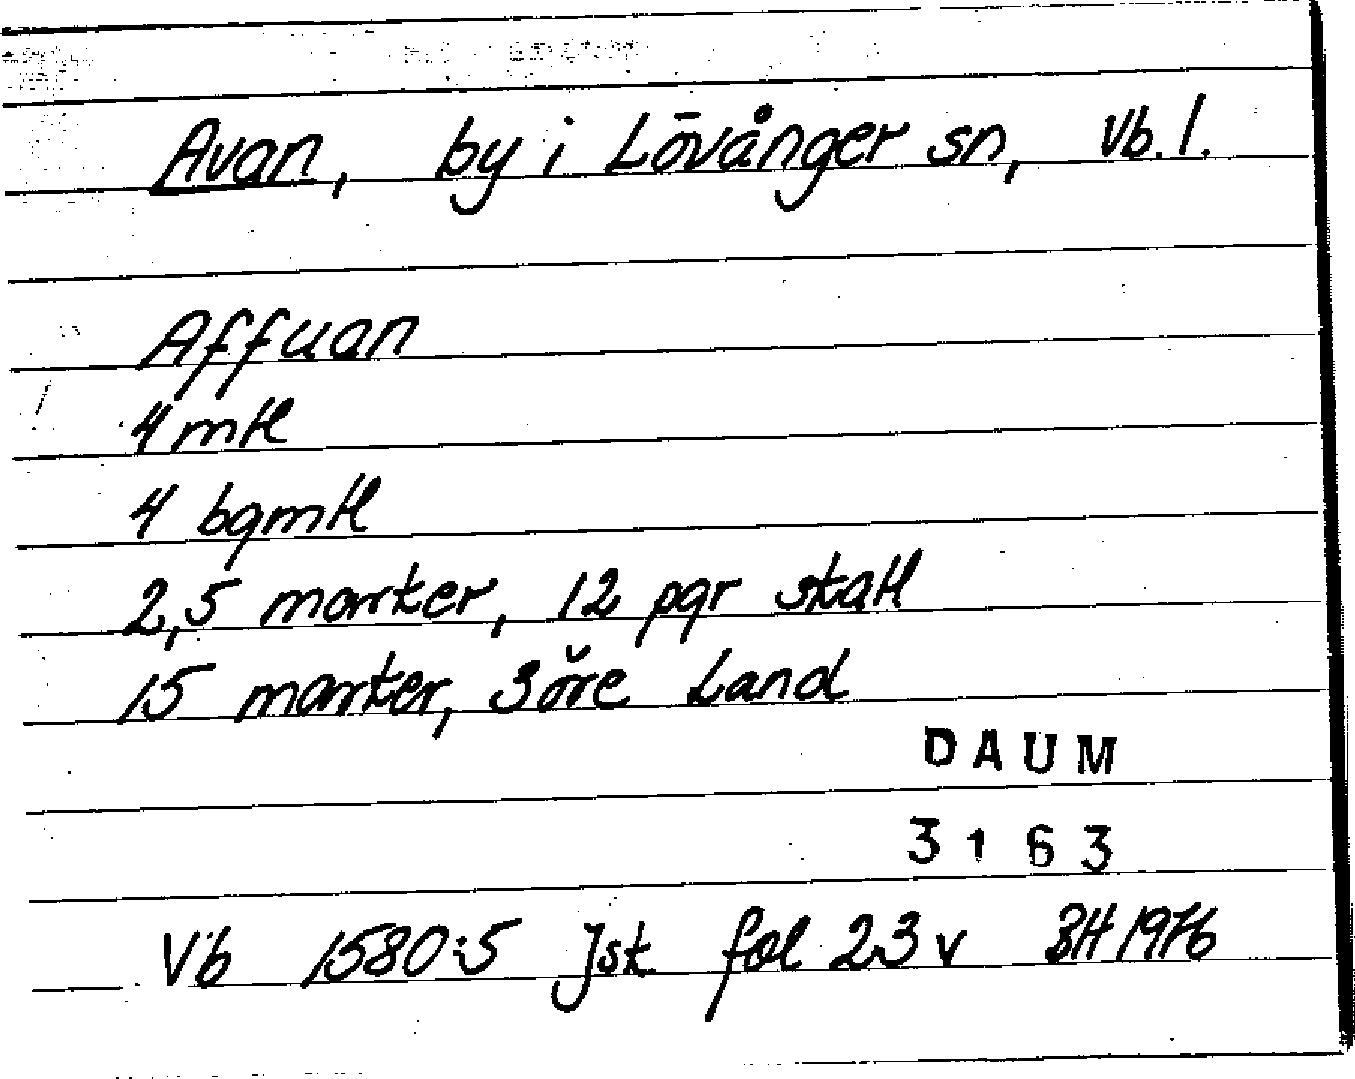 Avan, by i Lövånger sn, Vb. l.
Affuan
4 mtl
4 bgmtl
2,5 marker, 12 pgr skatt
15 marker, 3 öre Land
DAUM
3163
Vb 1580:5 Jsk fol 23 v BH 1976